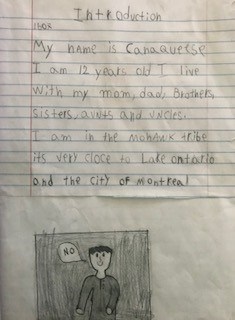 Introduction
1602
My name is Canaquerse
I am 12 years old I live
with my mom, dad, Brothers,
sisters, aunts and uncles.
I am in the Mohawk tribe
its very close to Lake ontario
and the city of Montreal
NO